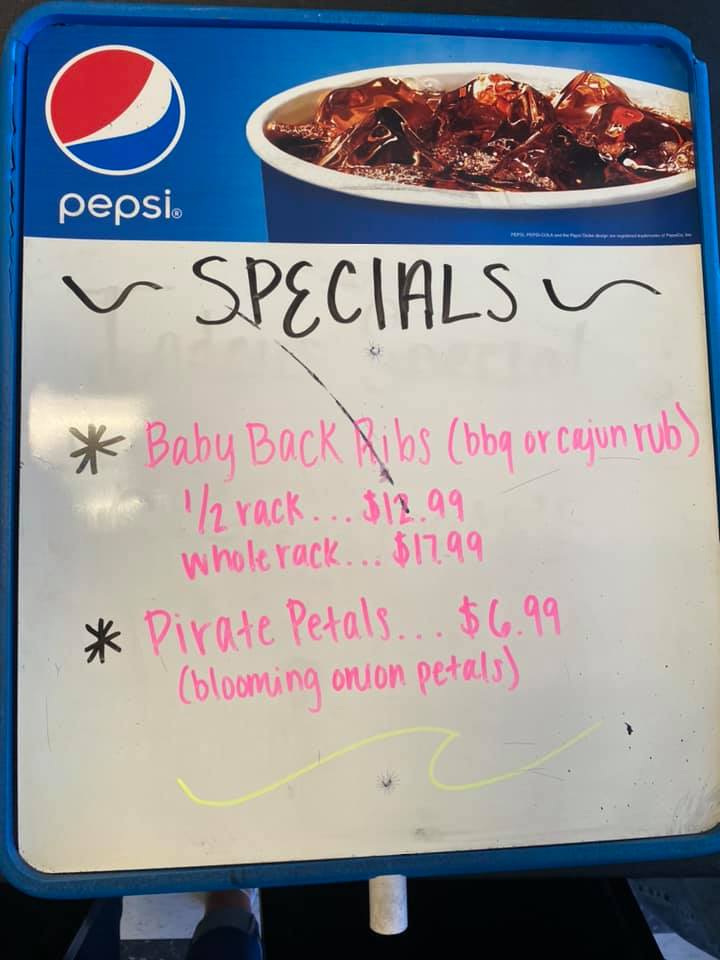 pepsi®
PEPSI, PEPSI-COLA and the Pepsi Globe design are registered trademarks of PepsiCo, Inc.
SPECIALS
* Baby Back Ribs (bbq or cajun rub)
1/2 rack... $12.99
whole rack... $17.99
* Pirate Petals... $6.99
(blooming onion petals)